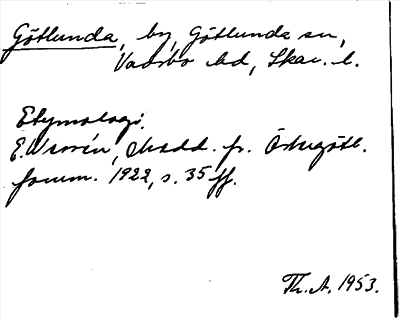 Götlunda, by, Götlunda sn,
Vadsbo hd, Skar. l.
Etymologi.
E. Noreén, Medd. fr. Östergötl.
fornm. 1922, s. 35 ff.
Th. A. 1953.